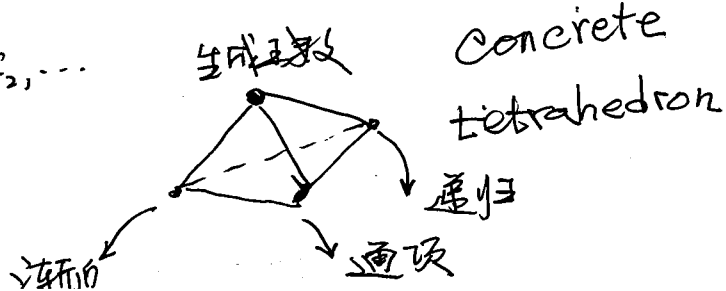 2,...
生成函数
concrete
tetrahedron
递归
通项
渐近